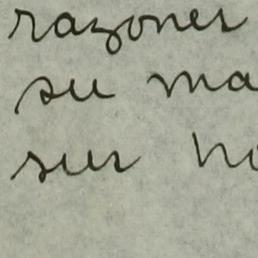 razones
su ma
sus no